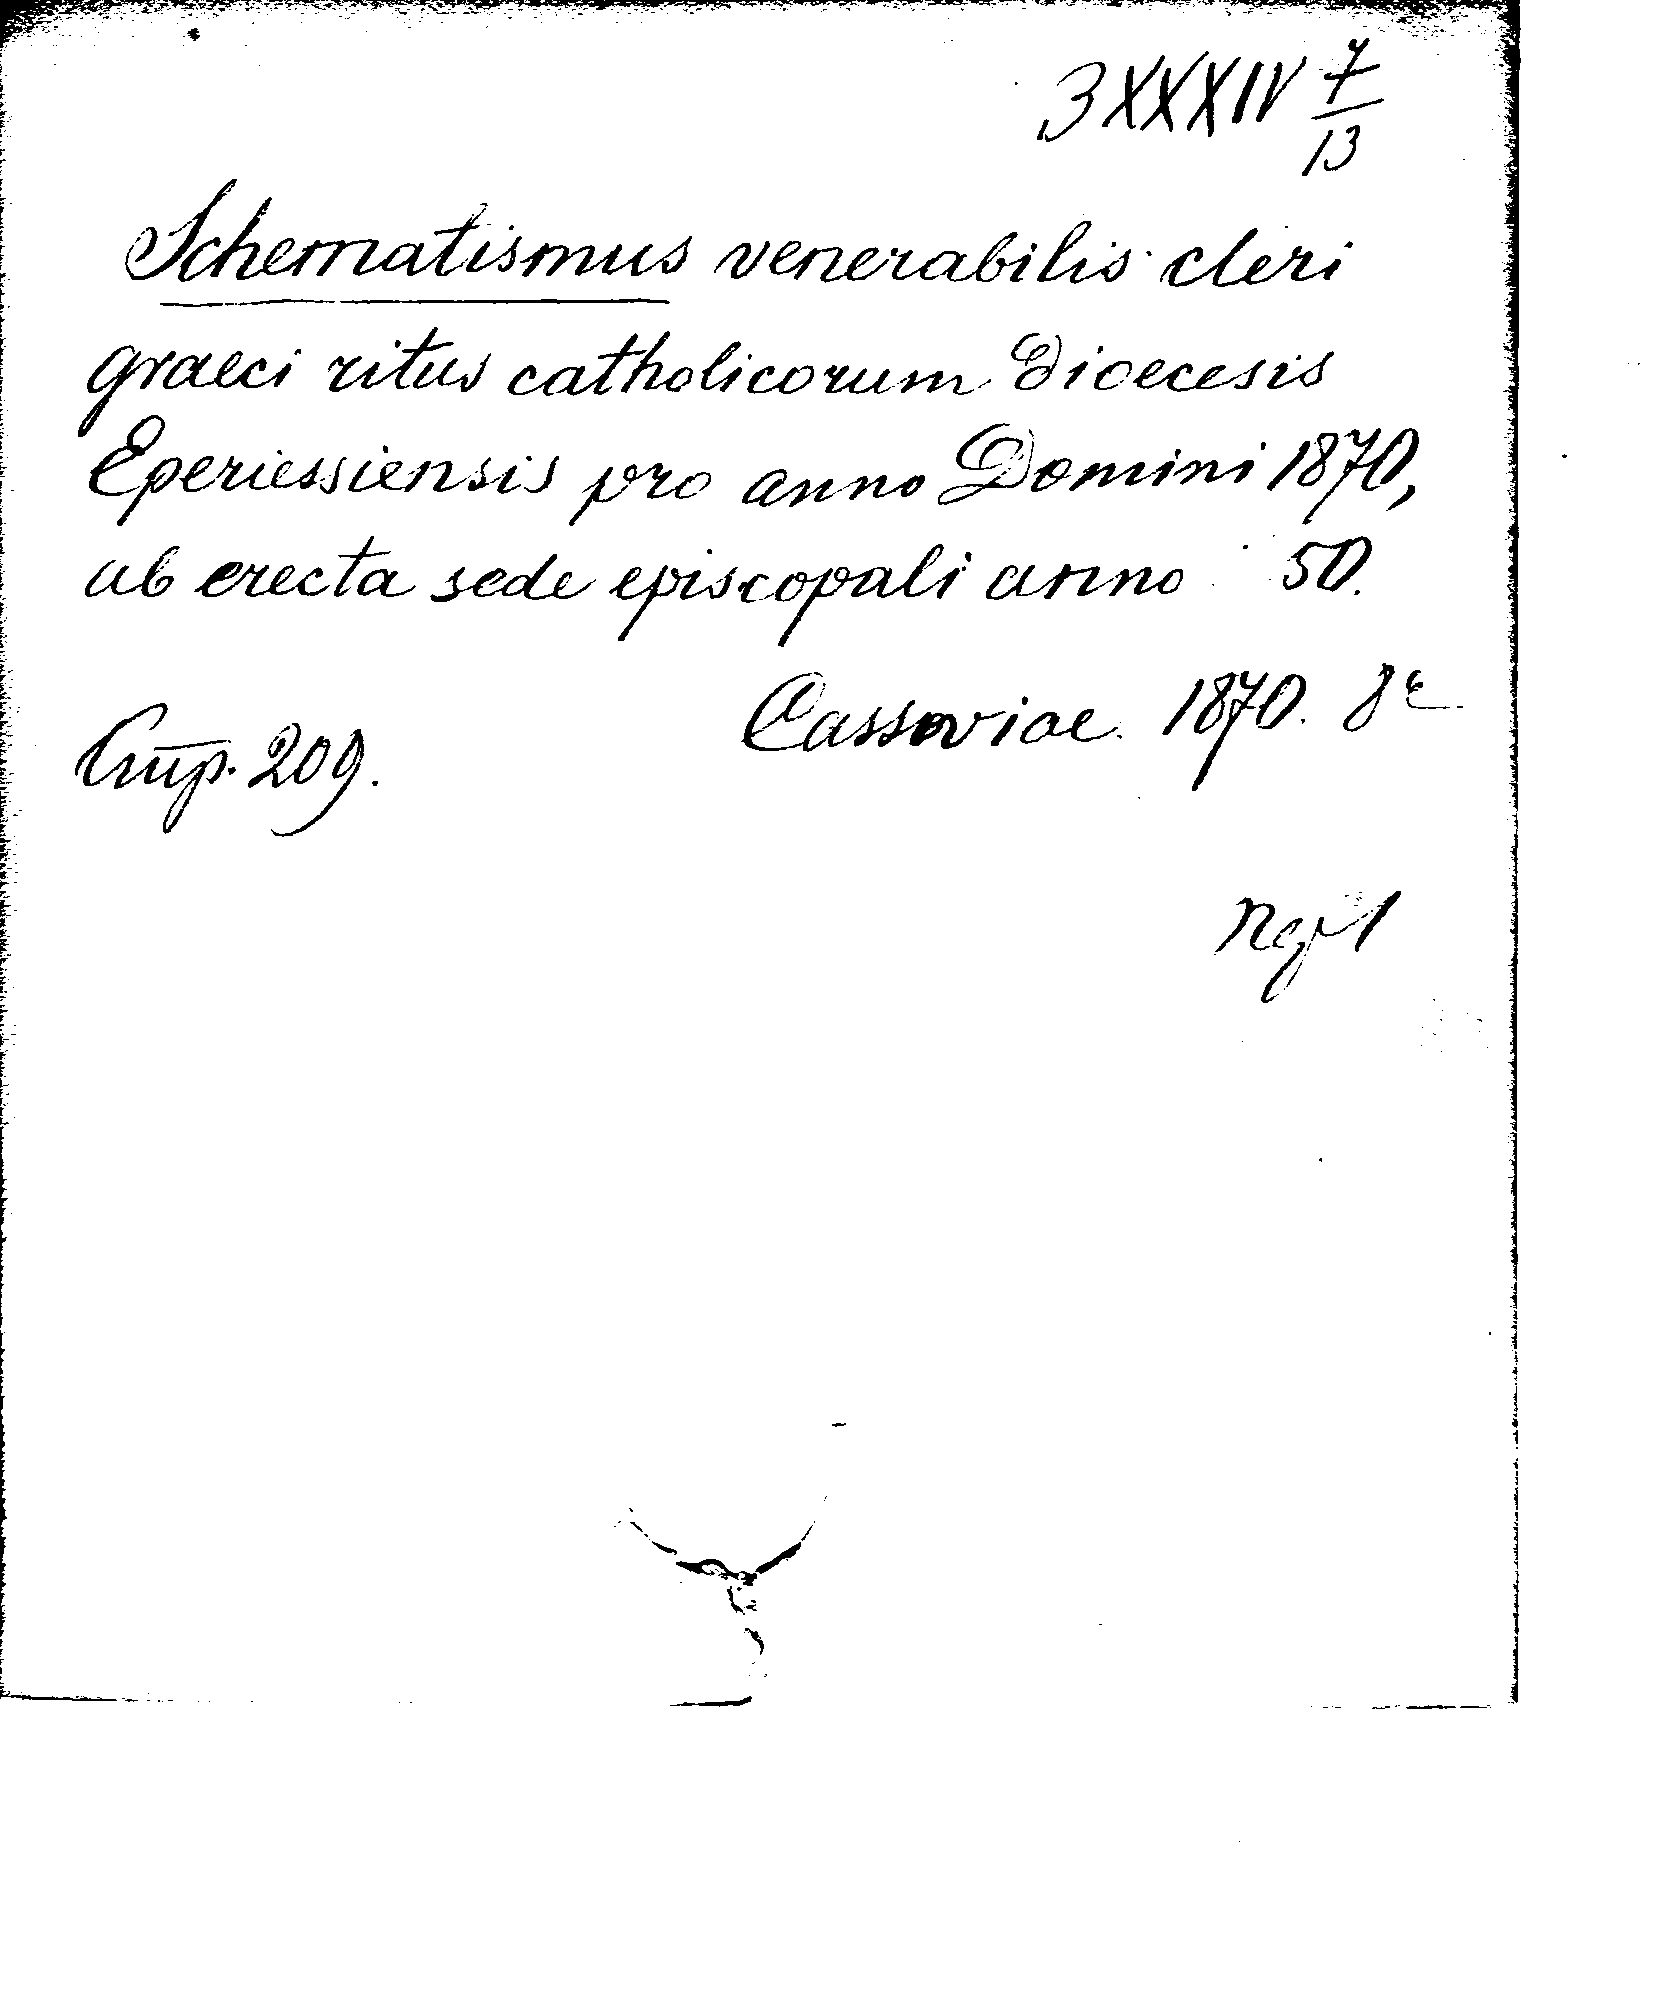 3 XXXIV 7/13
Schematismus venerabilis cleri
graeci ritus catholicorum Dioecesis
Eperiessiensis pro anno Domini 1870,
ab erecta sede episcopali anno 50.
Cassoviae. 1870. 8º
Стр. 209.